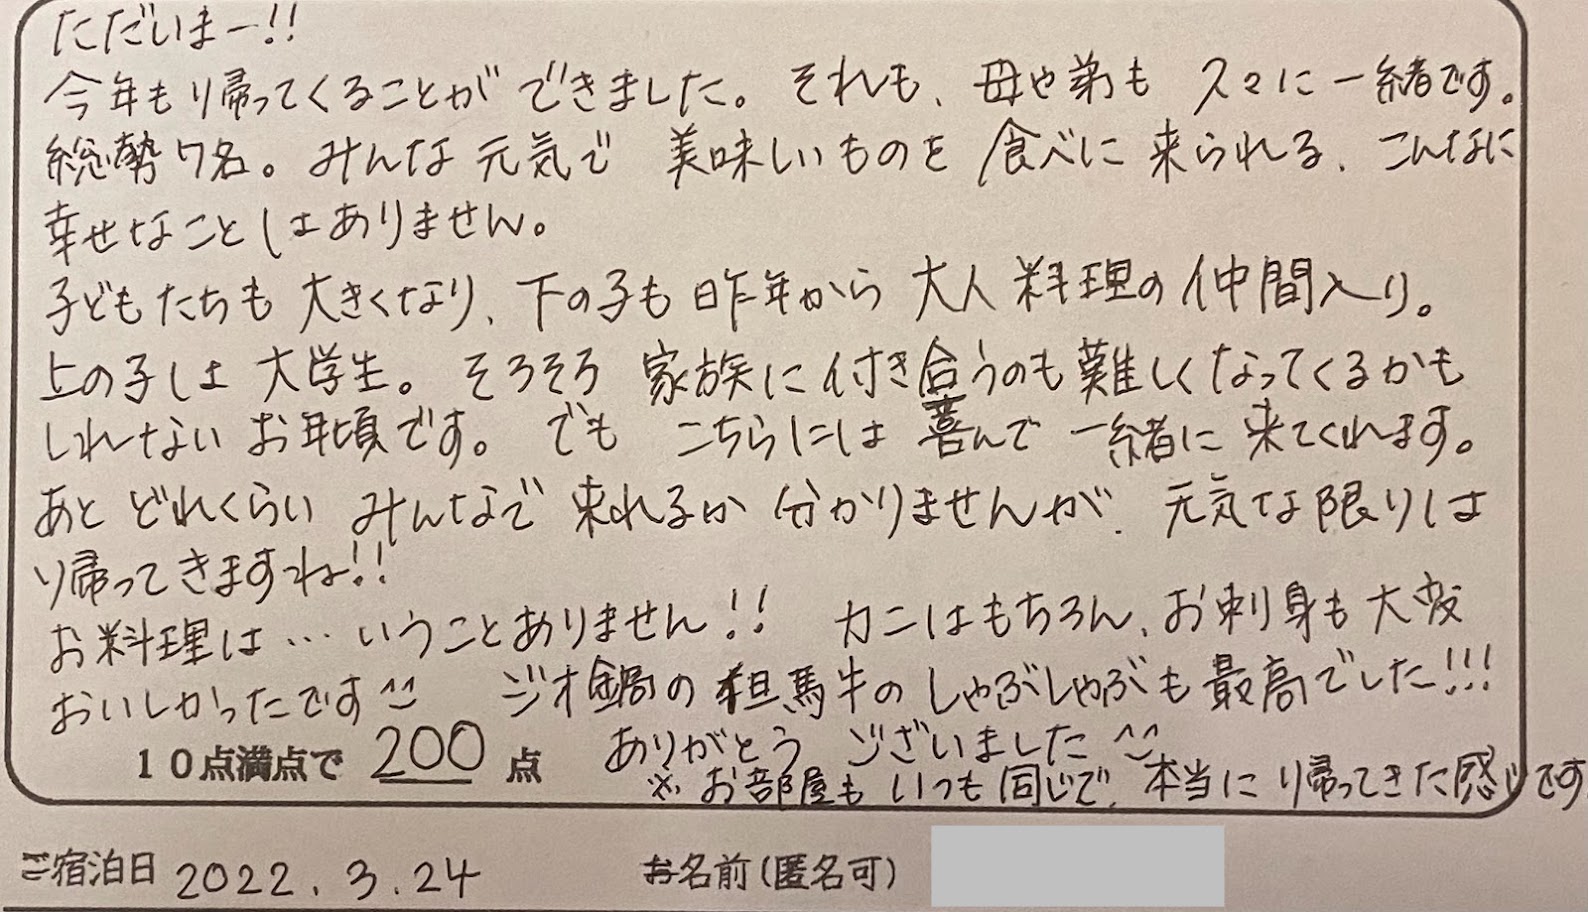 ただいまー!!
今年も帰ってくることができました。それも、母や弟も 久々に一緒です。
総勢7名。みんな元気で 美味しいものを食べに来られる、こんなに
幸せなことはありません。
子どもたちも大きくなり、下の子も昨年から大人料理の仲間入り。
上の子は大学生。そろそろ 家族に付き合うのも難しくなってくるかも
しれないお年頃です。でも こちらには喜んで一緒に来てくれます。
あとどれくらい みんなで来れるか分かりませんが、元気な限りは
帰ってきますね!!
お料理は…いうことありません!! カニはもちろん、お刺身も大変
おいしかったです^^ ジオ鍋の但馬牛のしゃぶしゃぶも最高でした!!!
10点満点で 200 点 ありがとうございました^^
※お部屋もいつも同じで、本当に帰ってきた感じです
ご宿泊日 2022.3.24 お名前(匿名可)